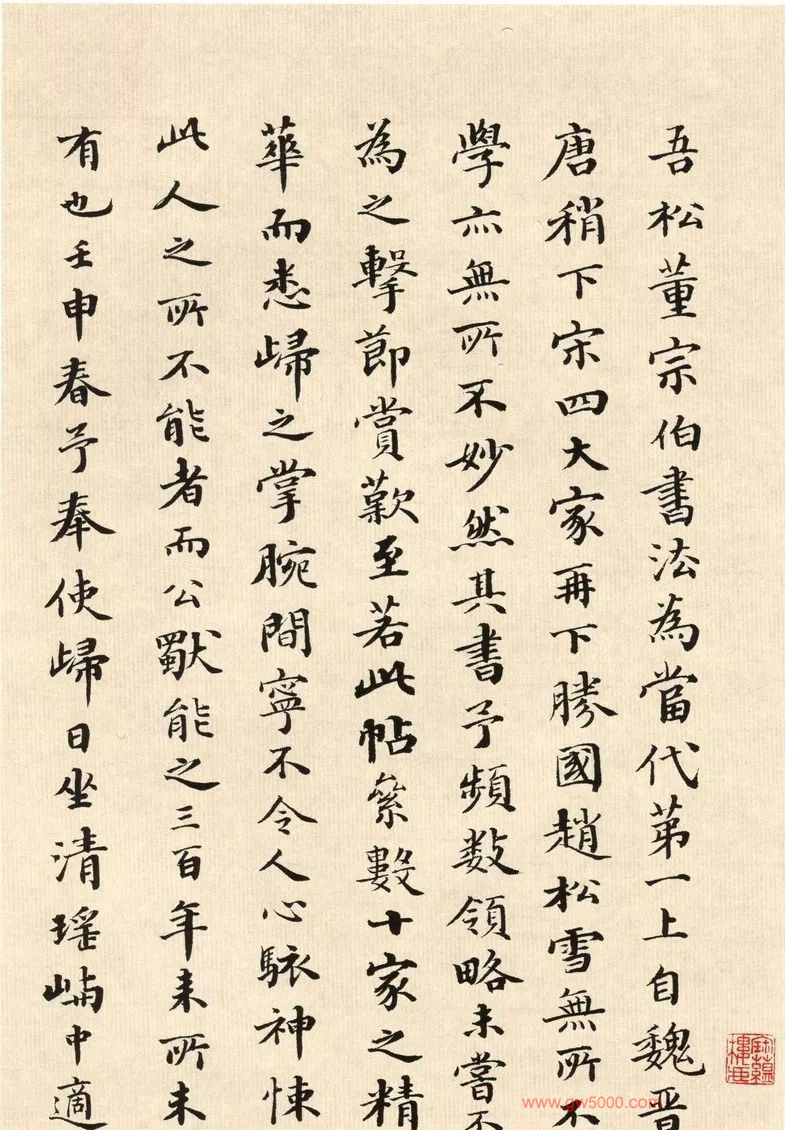 吾松董宗伯書法為當代第一上自魏晉
唐稍下宋四大家再下勝國趙松雪無所不
學亦無所不妙然其書予頻数領略未嘗不
為之擊節賞歎至若此帖縈數十家之精
華而悉歸之掌腕間寧不令人心駭神悚
此人之所不能者而公獸能之三百年来所未
有也壬申春予奉使歸日坐清瑤嶼中適
www.gw5000.com